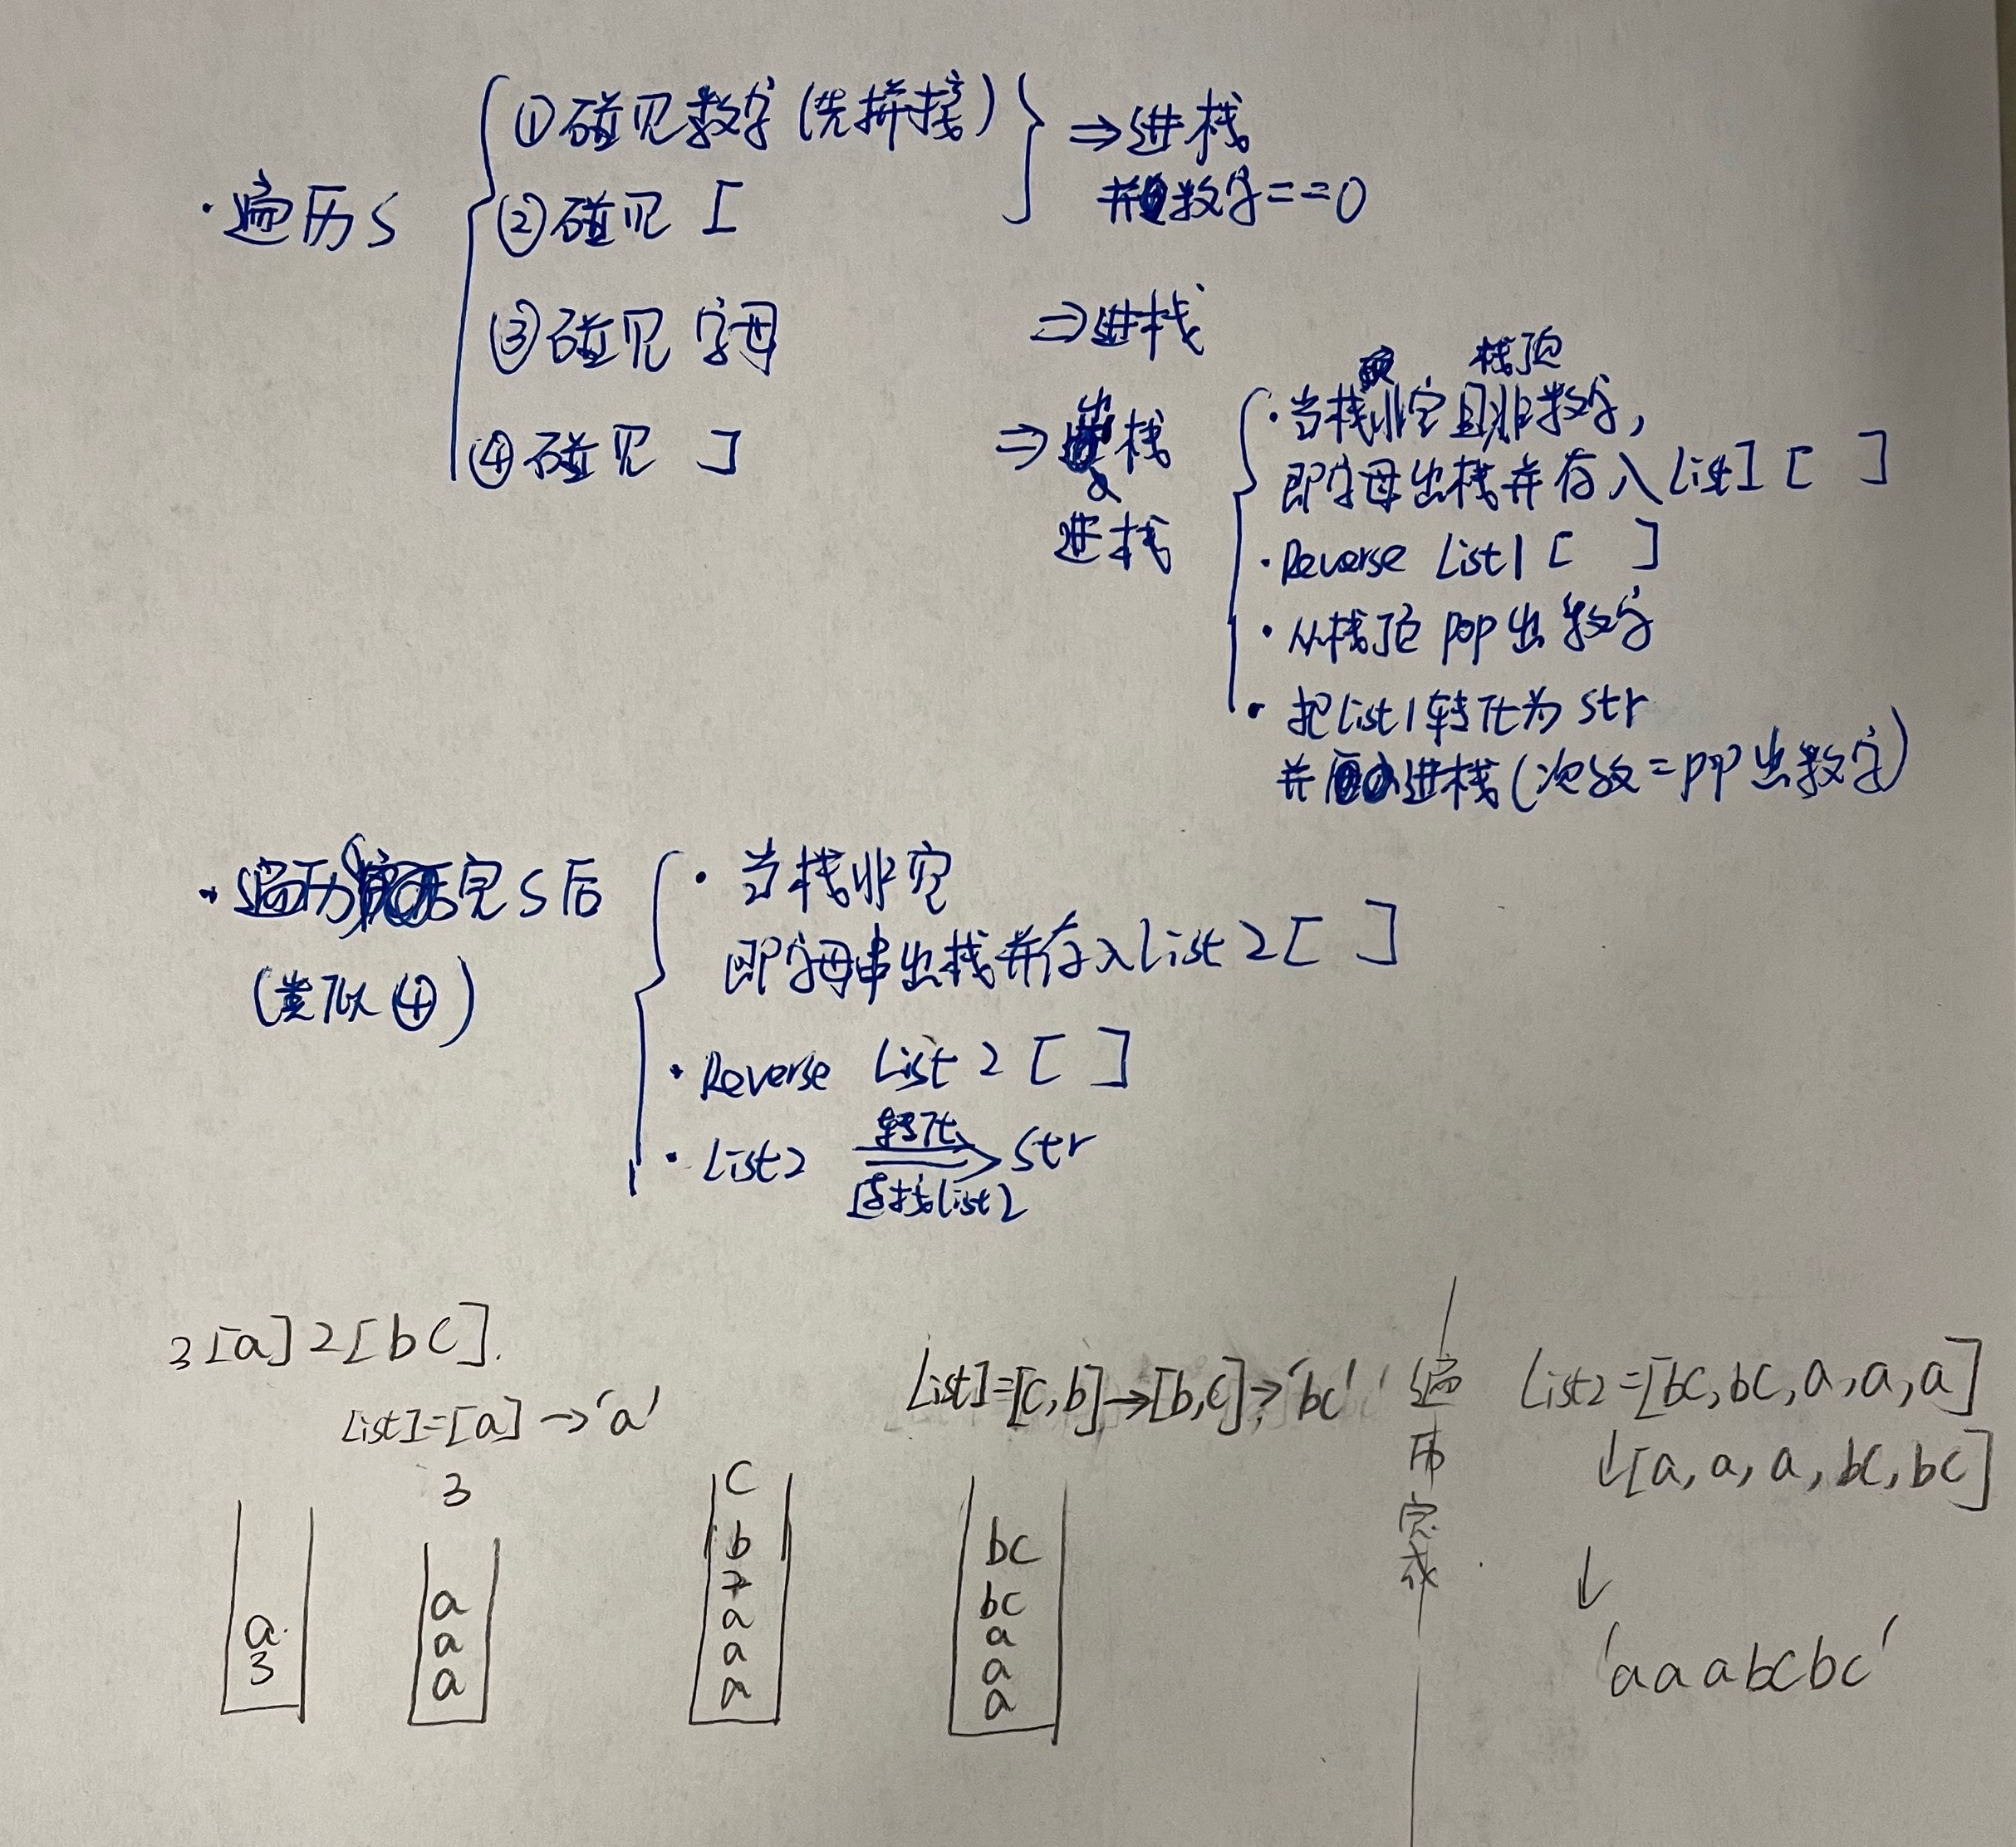 ·遍历S
①碰见数字(先拼接)
②碰见 [
⇒进栈
并数字==0
③碰见 字母 ⇒进栈
④碰见 ] ⇒出栈
&
进栈
栈顶
·当栈非空且非数字,
即字母出栈并存入list1 [ ]
·Reverse list1 [ ]
·从栈顶 pop 出 数字
·把list1转化为 str
并进栈(次数=pop出数字)
·遍历完S后
(类似④)
·当栈非空
即字母串出栈并存入list 2 [ ]
·Reverse list 2 [ ]
·list2 转化 str
连接list2
3[a]2[bc].
list1=[a]→'a'
3
a
3
a
a
a
c
b
2
a
a
a
list1=[c,b]→[b,c]→'bc'
bc
bc
a
a
a
遍
历
完
成
list2=[bc,bc,a,a,a]
↓[a,a,a,bc,bc]
↓
'aaabcbc'